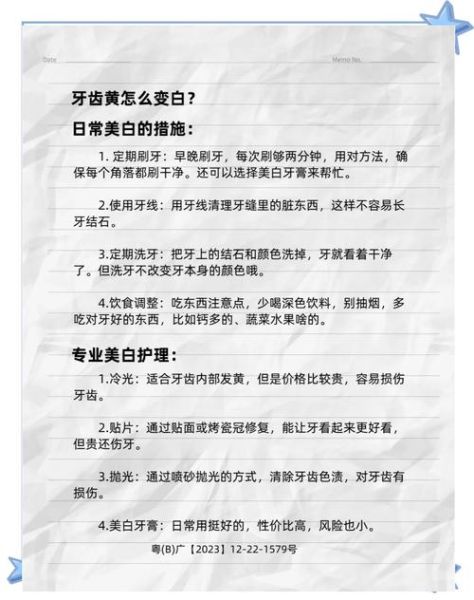 Date
Memo No.
牙齿黄怎么变白？
日常美白的措施：
1. 定期刷牙：早晚刷牙，每次刷够两分钟，用对方法，确
保每个角落都刷干净。还可以选择美白牙膏来帮忙。
2.使用牙线：用牙线清理牙缝里的脏东西，这样不容易长
牙结石。
3.定期洗牙：把牙上的结石和颜色洗掉，牙就看着干净
了。但洗牙不改变牙本身的颜色哦。
4.饮食调整：吃东西注意点，少喝深色饮料，别抽烟，多
吃对牙好的东西，比如钙多的、蔬菜水果啥的。
专业美白护理：
1.冷光：适合牙齿内部发黄，但是价格比较贵，容易损伤
牙齿。
2.贴片：通过贴面或烤瓷冠修复，能让牙看起来更好看，
但贵还伤牙。
3.抛光：通过喷砂抛光的方式，清除牙齿色渍，对牙齿有
损伤。
4.美白牙膏：日常用挺好的，性价比高，风险也小。
粤(B)广【2023】12-22-1579号